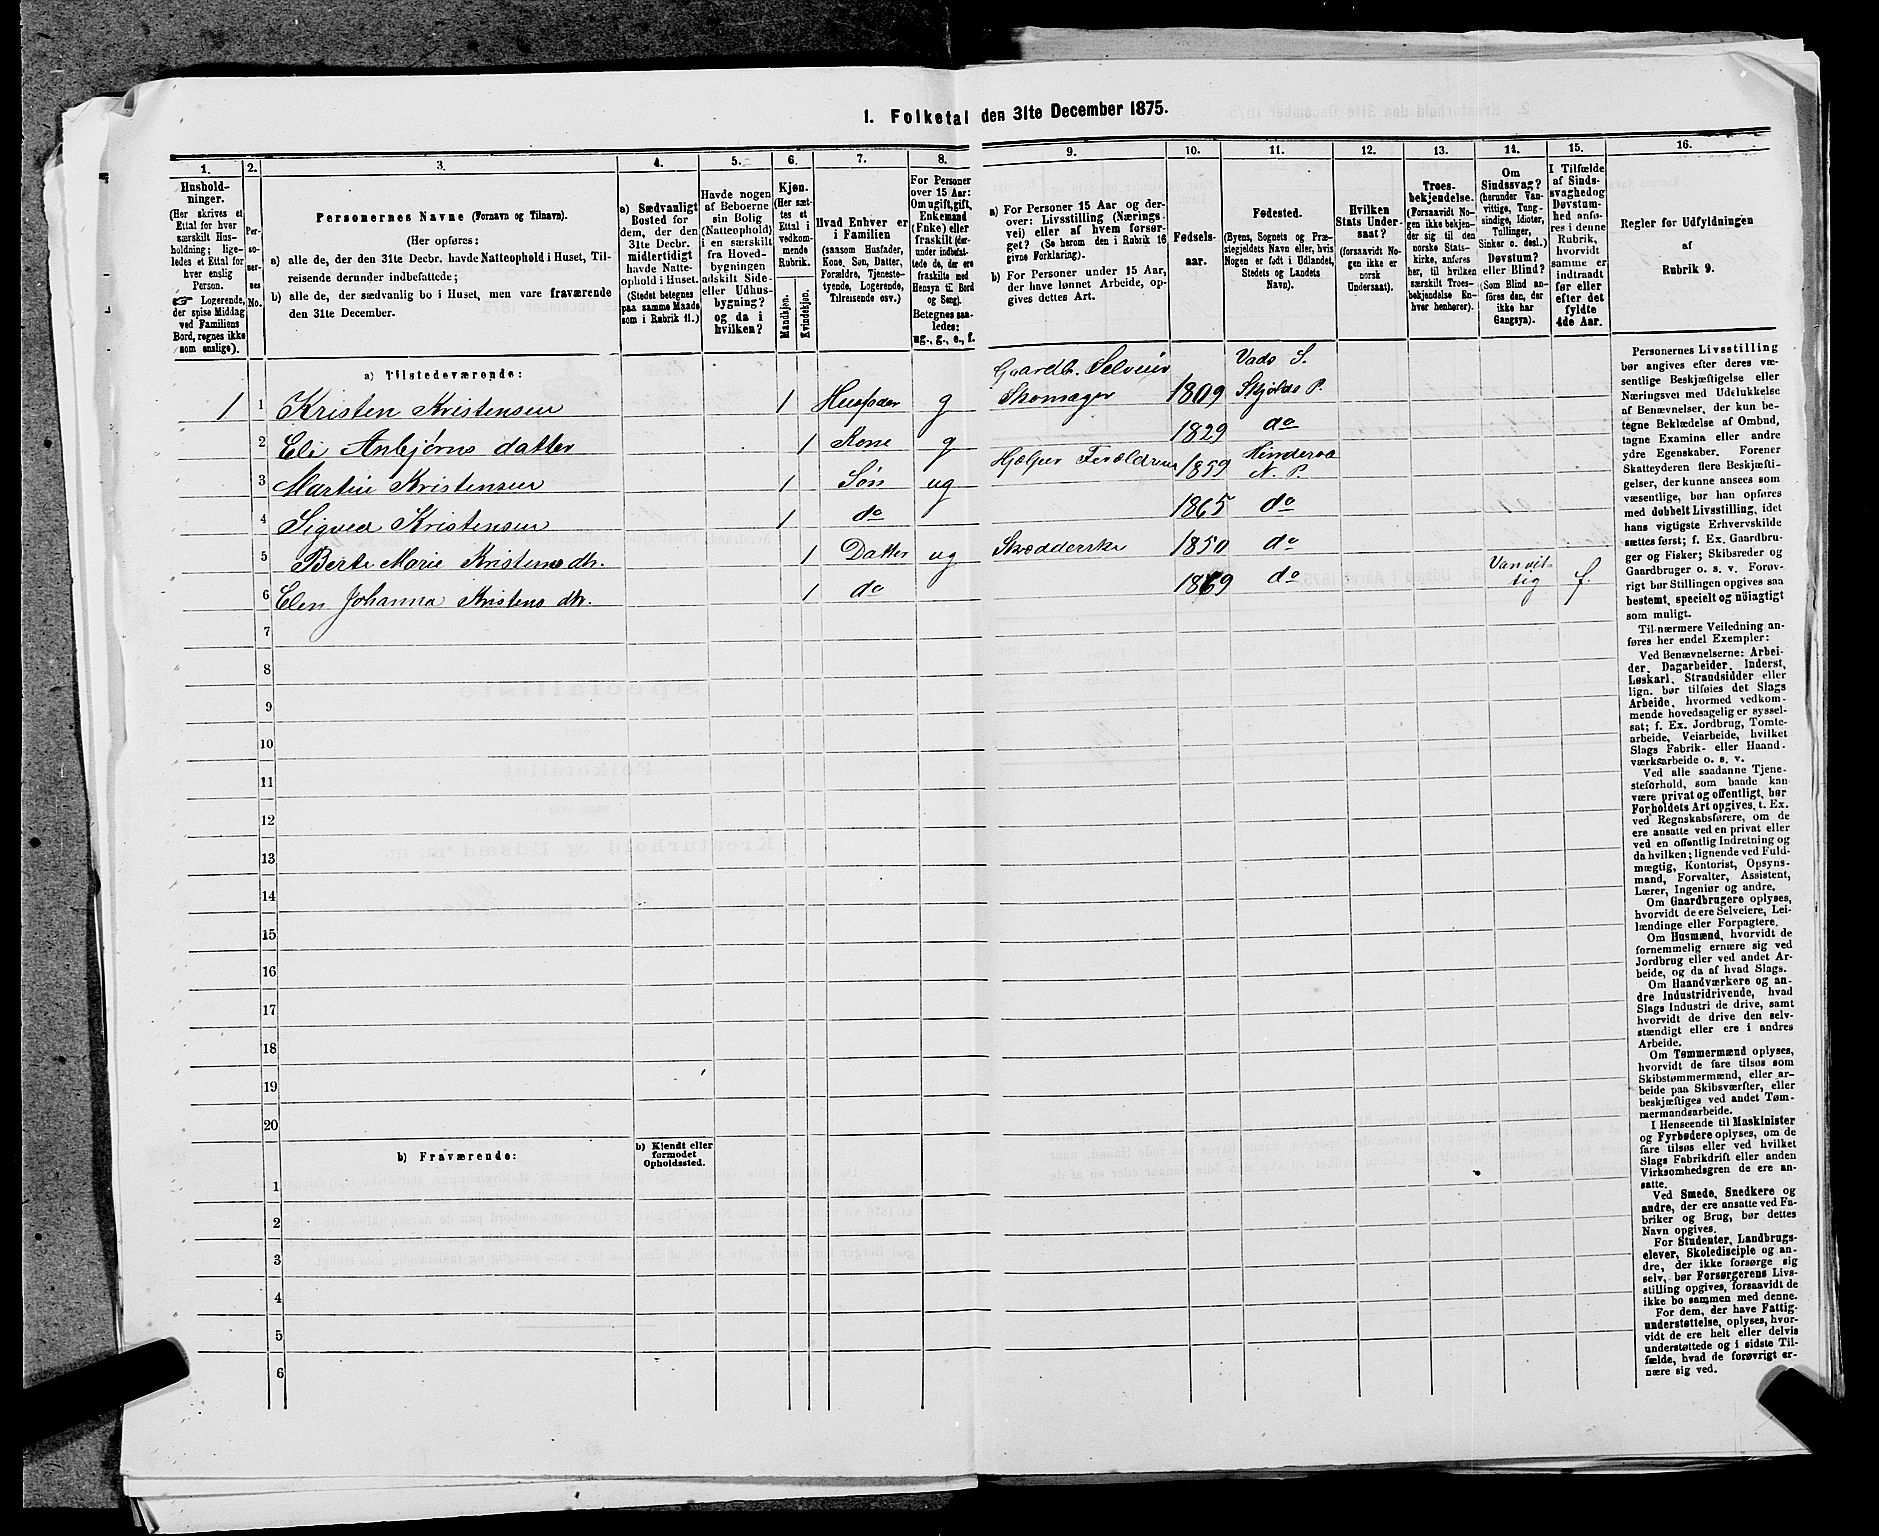 1. Folketal den 31te December 1875.
1. 2. 3. 4. 5. 6. 7. 8. 9. 10. 11. 12. 13. 14. 15. 16.
Hushold-
ninger.
(Her skrives et
Ettal for hver
særskilt Hus-
holdning; lige-
ledes et Ettal for
hver enslig
Person.
☞ Logerende,
der spise Middag
ved Familiens
Bord, regnes ikke
som enslige).
Per-
so-
ner-
nes
No.
Personernes Navne (Fornavn og Tilnavn).
(Her opføres:
a) alle de, der den 31te Decbr. havde Natteophold i Huset, Til-
reisende derunder indbefattede;
b) alle de, der sædvanlig bo i Huset, men vare fraværende
den 31te December.
a) Sædvanligt
Bosted for
dem, der den
31te Decbr.
midlertidigt
havde Natte-
ophold i Huset.
(Stedet betegnes
paa samme Maade
som i Rubrik 11.)
Havde nogen
af Beboerne
sin Bolig
(Natteophold)
i en særskilt
fra Hoved-
bygningen
adskilt Side-
eller Udhus-
bygning?
og da i
hvilken?
Kjøn.
(Her sæt-
tes et
Ettal i
vedkom-
mende
Rubrik.
Mandkjøn.
Kvindekjøn.
Hvad Enhver er
i Familien
(saasom Husfader,
Kone, Søn, Datter,
Forældre, Tjeneste-
tyende, Logerende,
Tilreisende osv.)
For Personer
over 15 Aar:
Om ugift, gift,
Enkemand
(Enke) eller
fraskilt (der-
under indbefat-
tede de, der ere
fraskilte med
Hensyn til Bord
og Seng).
Betegnes saa-
ledes:
ug., g., e., f.
a) For Personer 15 Aar og der-
over: Livsstilling (Nærings-
vei) eller af hvem forsør-
get? (Se herom den i Rubrik 16
givne Forklaring).
b) For Personer under 15 Aar,
der have lønnet Arbeide, op-
gives dettes Art.
Fødsels-
aar.
Fødested.
(Byens, Sognets og Præ-
stegjeldets Navn eller, hvis
Nogen er født i Udlandet,
Stedets og Landets
Navn).
Hvilken
Stats Under-
saat?
(forsaavidt No-
gen ikke er
norsk
Undersaat).
Troes-
bekjendelse.
(Forsaavidt No-
gen ikke bekjen-
der sig til den
norske Stats-
kirke, anføres
her, til hvilken
særskilt Troes-
bekjendelse En-
hver henhører).
Om
Sindssvag?
(herunder Van-
vittige, Tung-
sindige, Idioter,
Tullinger,
Sinker o. desl.)
Døvstum?
eller Blind?
(Som Blind an-
føres den, der
ikke har
Gangsyn).
I Tilfælde
af Sinds-
svaghed og
Døvstum-
hed anfø-
res i denne
Rubrik,
hvorvidt
samme er
indtraadt
før eller
efter det
fyldte
4de Aar.
Regler for Udfyldningen
af
Rubrik 9.
a) Tilstedeværende:
1 1 Kristen Kristensen 1 Husfader g Gaardb. Selveier Skomager 1809 Vads S. Skjolds P.
2 Eli Anbjørns datter 1 Kone g 1829 do
3 Martin Kristensen 1 Søn ug Hjælper Forældrene 1859 N. P.
4 Sigvea Kristensen 1 do 1865 do
5 Berte Marie Kristens dtr. 1 Datter ug Skrædderske 1850 do
6 Elen Johanna Kristens dtr. 1 do 1869 do Vanvit-tig f.
7
8
9
10
11
12
13
14
15
16
17
18
19
20
b) Fraværende:
b) Kjendt eller
formodet
Opholdssted.
1
2
3
4
5
6
Personernes Livsstilling
bør angives efter deres væ-
sentlige Beskjæftigelse eller
Næringsvei med Udelukkelse
af Benævnelser, der kun be-
tegne Beklædelse af Ombud,
tagne Examina eller andre
ydre Egenskaber. Forener
Skatteyderen flere Beskjæfti-
gelser, der kunne ansees som
væsentlige, bør han opføres
med dobbelt Livsstilling, idet
hans vigtigste Erhvervskilde
sættes først; f. Ex. Gaardbru-
ger og Fisker; Skibsreder og
Gaardbruger o. s. v. Forøv-
rigt bør Stillingen opgives saa
bestemt, specielt og nöiagtigt
som muligt.
Til nærmere Veiledning an-
føres her endel Exempler:
Ved Benævnelserne: Arbei-
der, Dagarbeider, Inderst,
Løskarl, Strandsidder eller
lign. bør tilføies det Slags
Arbeide, hvormed vedkom-
mende hovedsagelig er syssel-
sat; f. Ex. Jordbrug, Tomte-
arbeide, Veiarbeide, hvilket
Slags Fabrik- eller Haand-
værksarbeide o. s. v.
Ved alle saadanne Tjene-
steforhold, som baade kan
være privat og offentligt, bør
Forholdets Art opgives, t. Ex.
ved Regnskabsførere, om de
ere ansatte ved en privat eller
ved en offentlig Indretning og
da hvilken; lignende ved Fuld-
mægtig, Kontorist, Opsyns-
mand, Forvalter, Assistent,
Lærer, Ingeniør og andre.
Om Gaardbrugere oplyses,
hvorvidt de ere Selveiere, Lei-
lændinge eller Forpagtere.
Om Husmænd, hvorvidt de
fornemmelig ernære sig ved
Jordbrug eller ved andet Ar-
beide, og da af hvad Slags.
Om Haandværkere og an-
dre Industridrivende, hvad
Slags Industri de drive, samt
hvorvidt de drive den selv-
stændigt eller ere i andres
Arbeide.
Om Tømmermænd oplyses,
hvorvidt de fare tilsøs som
Skibstømmermænd, eller ar-
beide paa Skibsværfter, eller
beskjæftiges ved andet Tøm-
mermandsarbeide.
I Henseende til Maskinister
og Fyrbødere oplyses, om de
fare tilsøs eller ved hvilket
Slags Fabrikdrift eller anden
Virksomhedsgren de ere an-
satte.
Ved Smede, Snedkere og
andre, der ere ansatte ved Fa-
briker og Brug, bør dettes
Navn opgives.
For Studenter, Landbrugs-
elever, Skoledisciple og an-
dre, der ikke forsørge sig
selv, bør Forsørgerens Livs-
stilling opgives, forsaavidt de
ikke bo sammen med denne.
For dem, der have Fattig-
understøttelse, oplyses, hvor-
vidt de ere helt eller delvis
understøttede og i sidste Til-
fælde, hvad de forøvrigt er-
nære sig ved.